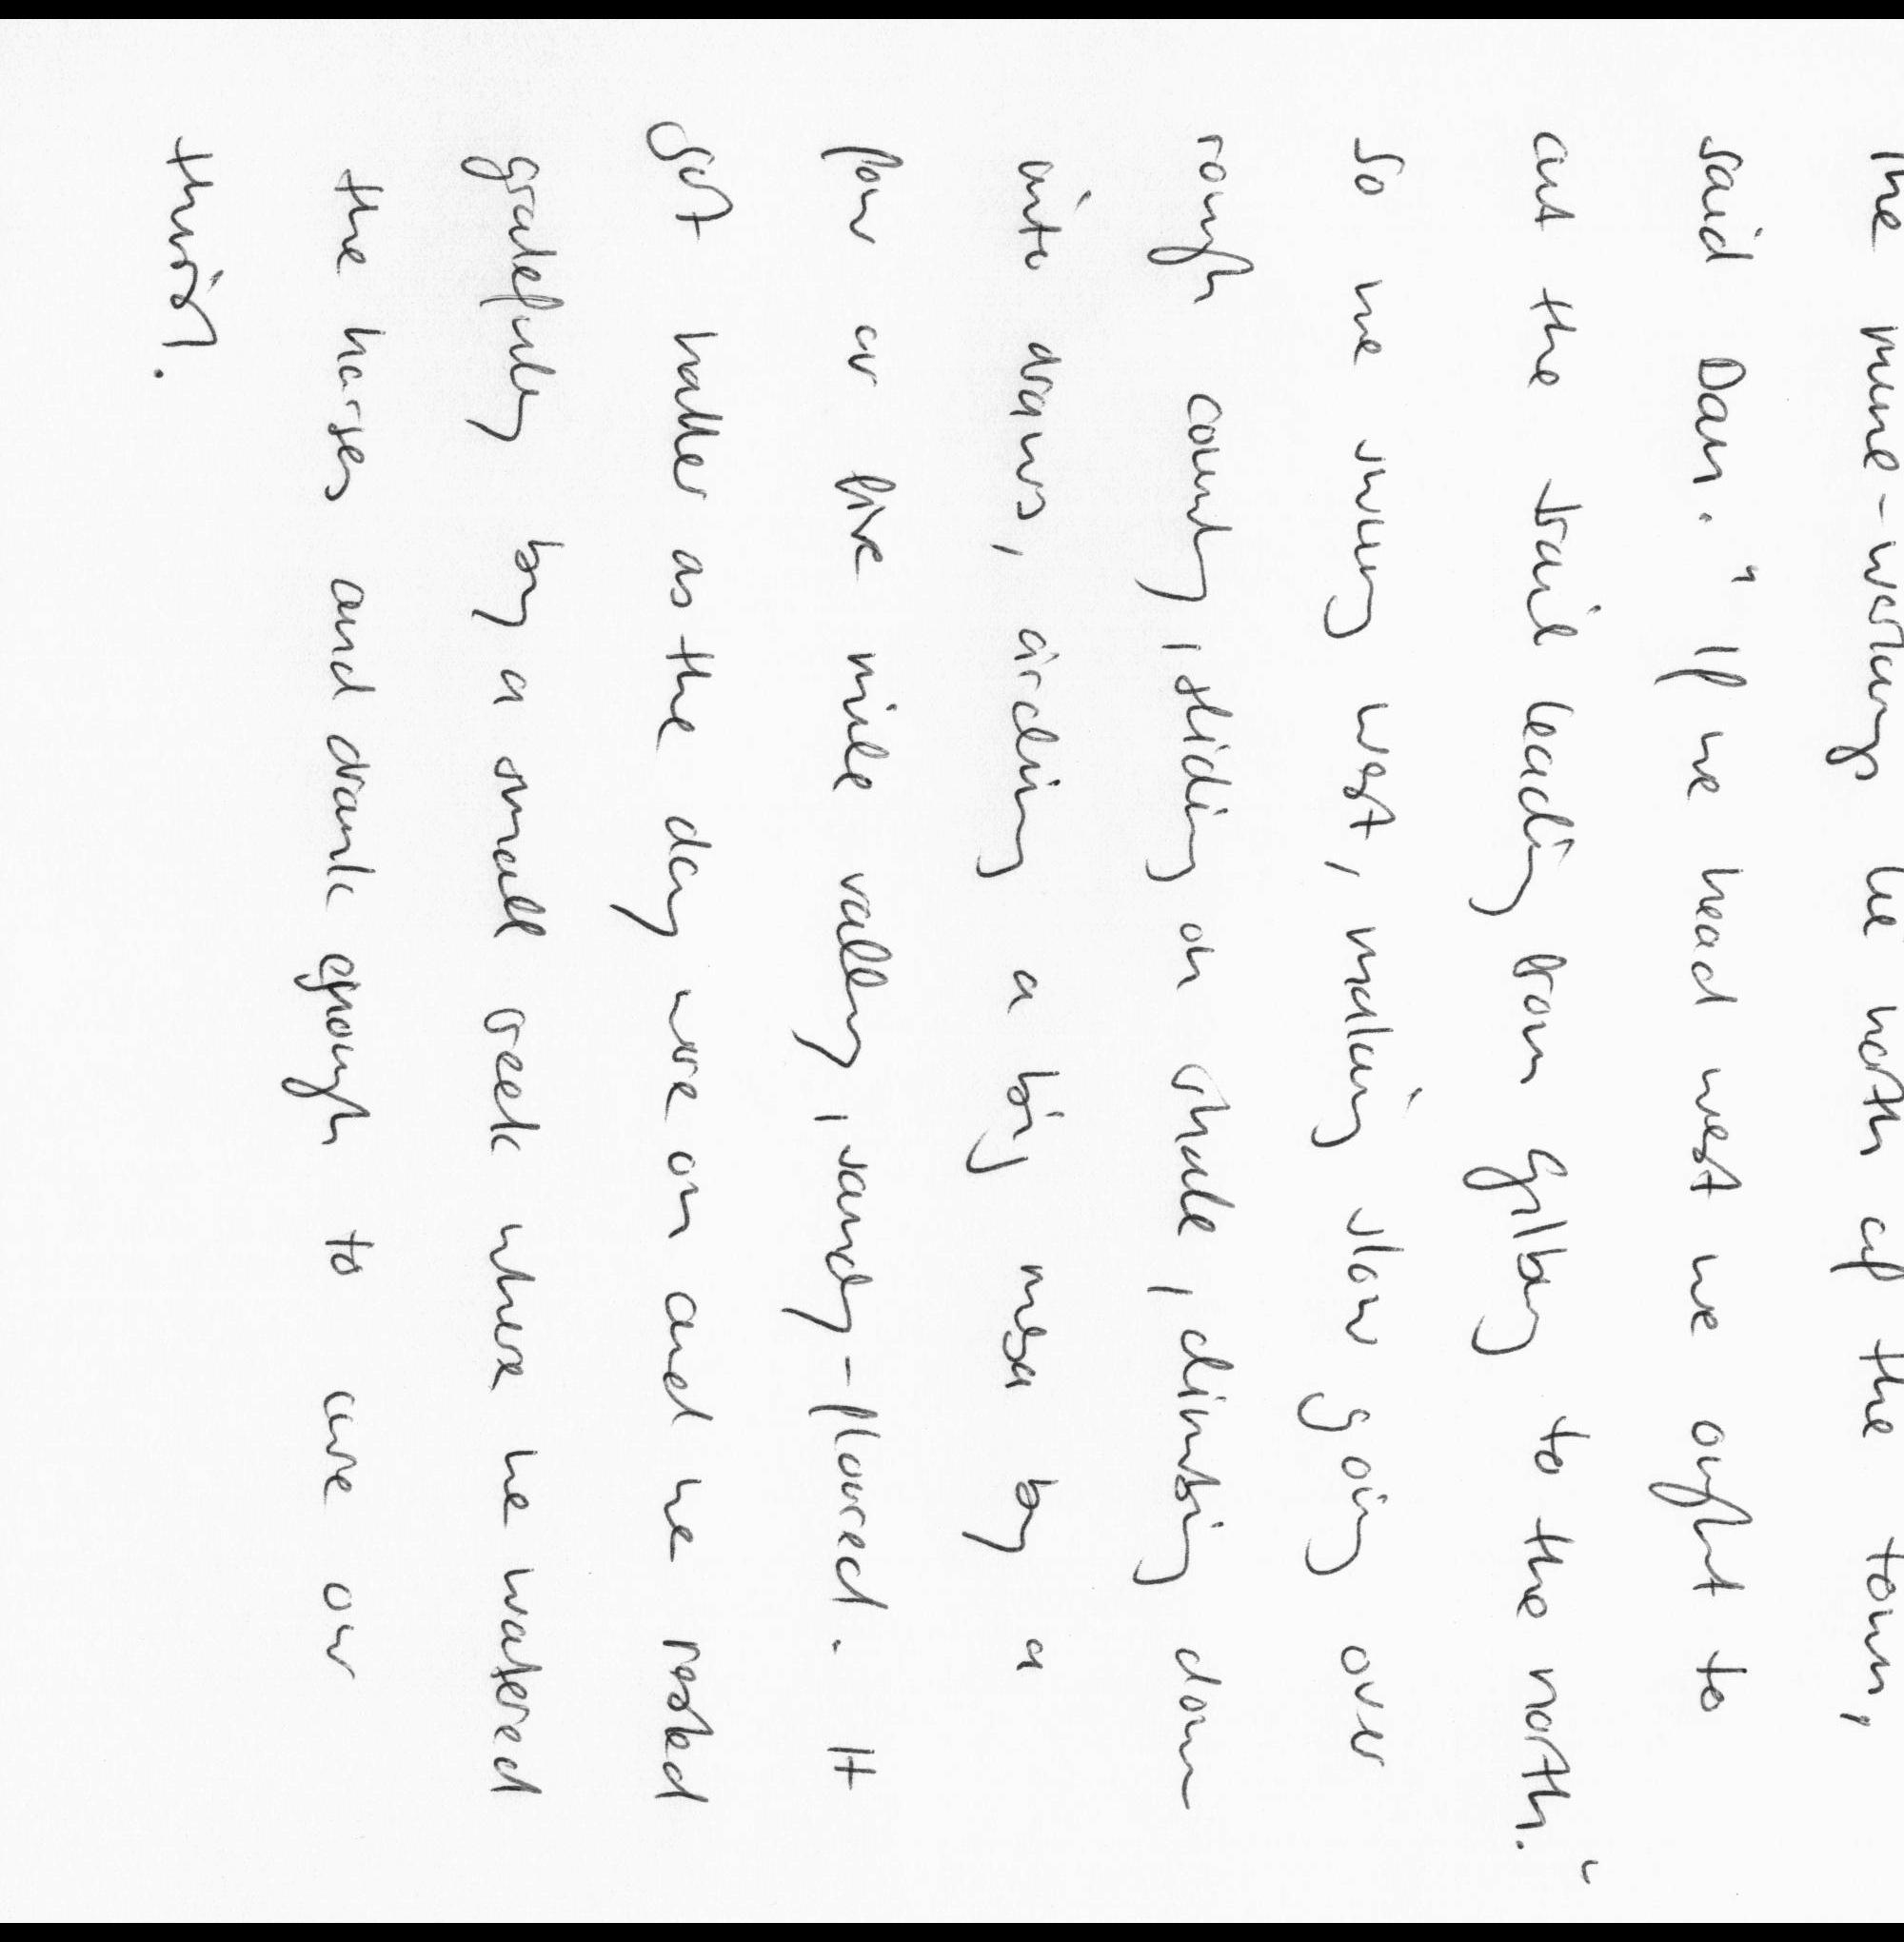 The mine-workings lie north of the town,
said Dan. "If we head west we ought to
cut the trail leading from Gilboy to the north."
So we swung west, making slow going over
rough county, sliding on shale, climbing down
into draws, circling a big mesa by a
four or five mile valley, sandy-floured. It
got hotter as the day wore on and we rested
gratefully by a small creek where we watered
the horses and drank enough to cure our
thirst.